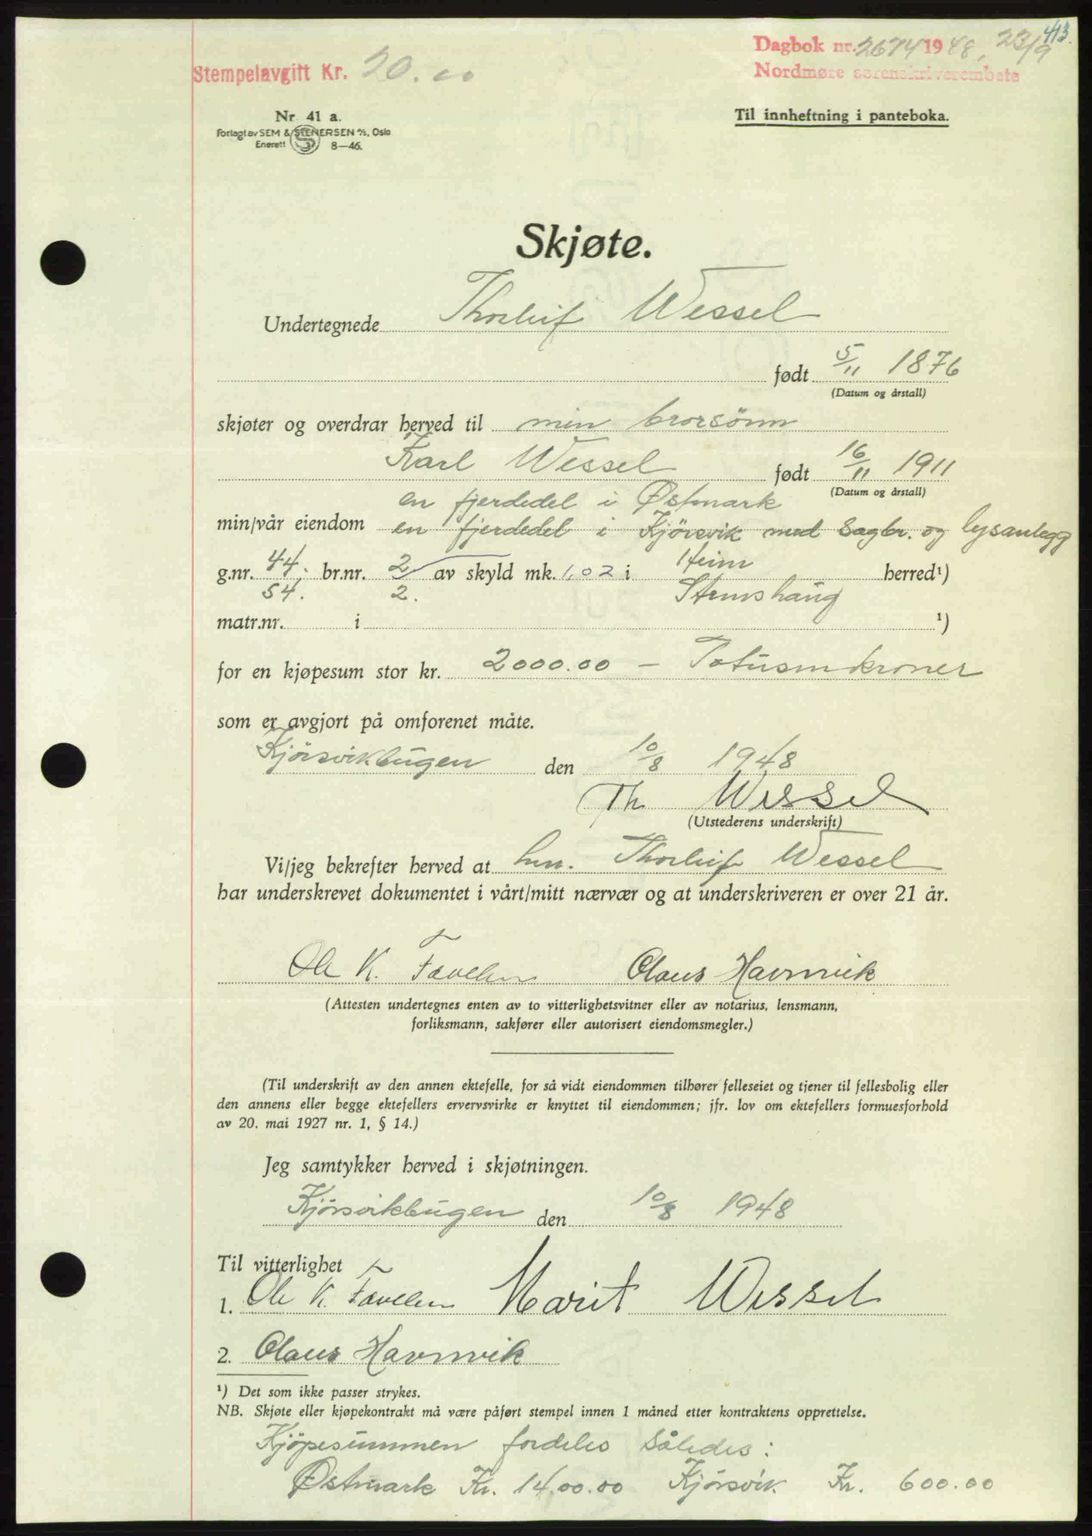 413.
Dagbok nr. 2674 1948, 23/9
Stempelavgift Kr. 20.00
Nordmøre sorenskriverembete
Nr. 41 a.
Forlagt av SEM & STENERSEN A/S, Oslo
Enerett 8—46.
Til innheftning i panteboka.
Skjøte.
Undertegnede Thorleif Wessel
født 5/11 1876
(Datum og årstall)
skjøter og overdrar herved til min brorsønn
Karl Wessel født 16/11 1911
(Datum og årstall)
en fjerdedel i Østmark
min/vår eiendom en fjerdedel i Kjörsvik med Sagbr. og lysanlegg
g.nr. 44. br.nr. 2 av skyld mk. 1,02 i Heim herred¹)
54. 2. Stemshaug
matr.nr. i ¹)
for en kjøpesum stor kr. 2000.00 — Totusenkroner
som er avgjort på omforenet måte.
Kjörsvikbugen den 10/8 1948
Th Wessel
(Utstederens underskrift)
Vi/jeg bekrefter herved at hrr. Thorleif Wessel
har underskrevet dokumentet i vårt/mitt nærvær og at underskriveren er over 21 år.
Ole K. Tavelen Olaus Havnvik
(Attesten undertegnes enten av to vitterlighetsvitner eller av notarius, lensmann,
forliksmann, sakfører eller autorisert eiendomsmegler.)
(Til underskrift av den annen ektefelle, for så vidt eiendommen tilhører felleseiet og tjener til fellesbolig eller
den annens eller begge ektefellers ervervsvirke er knyttet til eiendommen; jfr. lov om ektefellers formuesforhold
av 20. mai 1927 nr. 1, § 14.)
Jeg samtykker herved i skjøtningen.
Kjörsvikbugen den 10/8 1948
Til vitterlighet
1. Ole K. Tavelen Marit Wessel
2. Olaus Havnvik
¹) Det som ikke passer strykes.
NB. Skjøte eller kjøpekontrakt må være påført stempel innen 1 måned etter kontraktens opprettelse.
Kjöpesummen fordeles således:
Østmark Kr. 1400.00 Kjörsvik Kr. 600.00